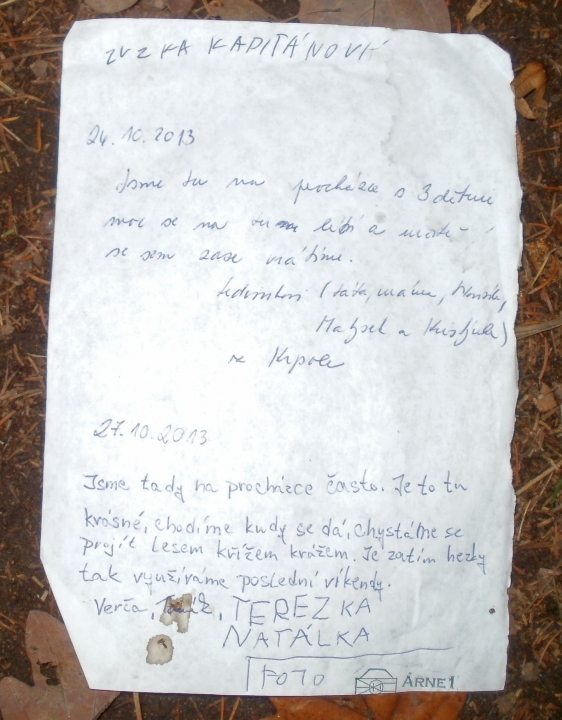 ZUZKA KAPITÁNOVÁ
24.10.2013
Jsme tu na procházce s 3 dětmi
moc se nám tu líbí a určitě
se sem zase vrátíme.
(táta, máma,
Matýsek a Kristýnka)
27.10.2013
Jsme tady na procházce často. Je to tu
krásné, chodíme kudy se dá, chystáme se
projít lesem křížem krážem. Je zatím hezky
tak využíváme poslední víkendy.
Verča, TEREZKA
NATÁLKA
FOTO ÁRNE1